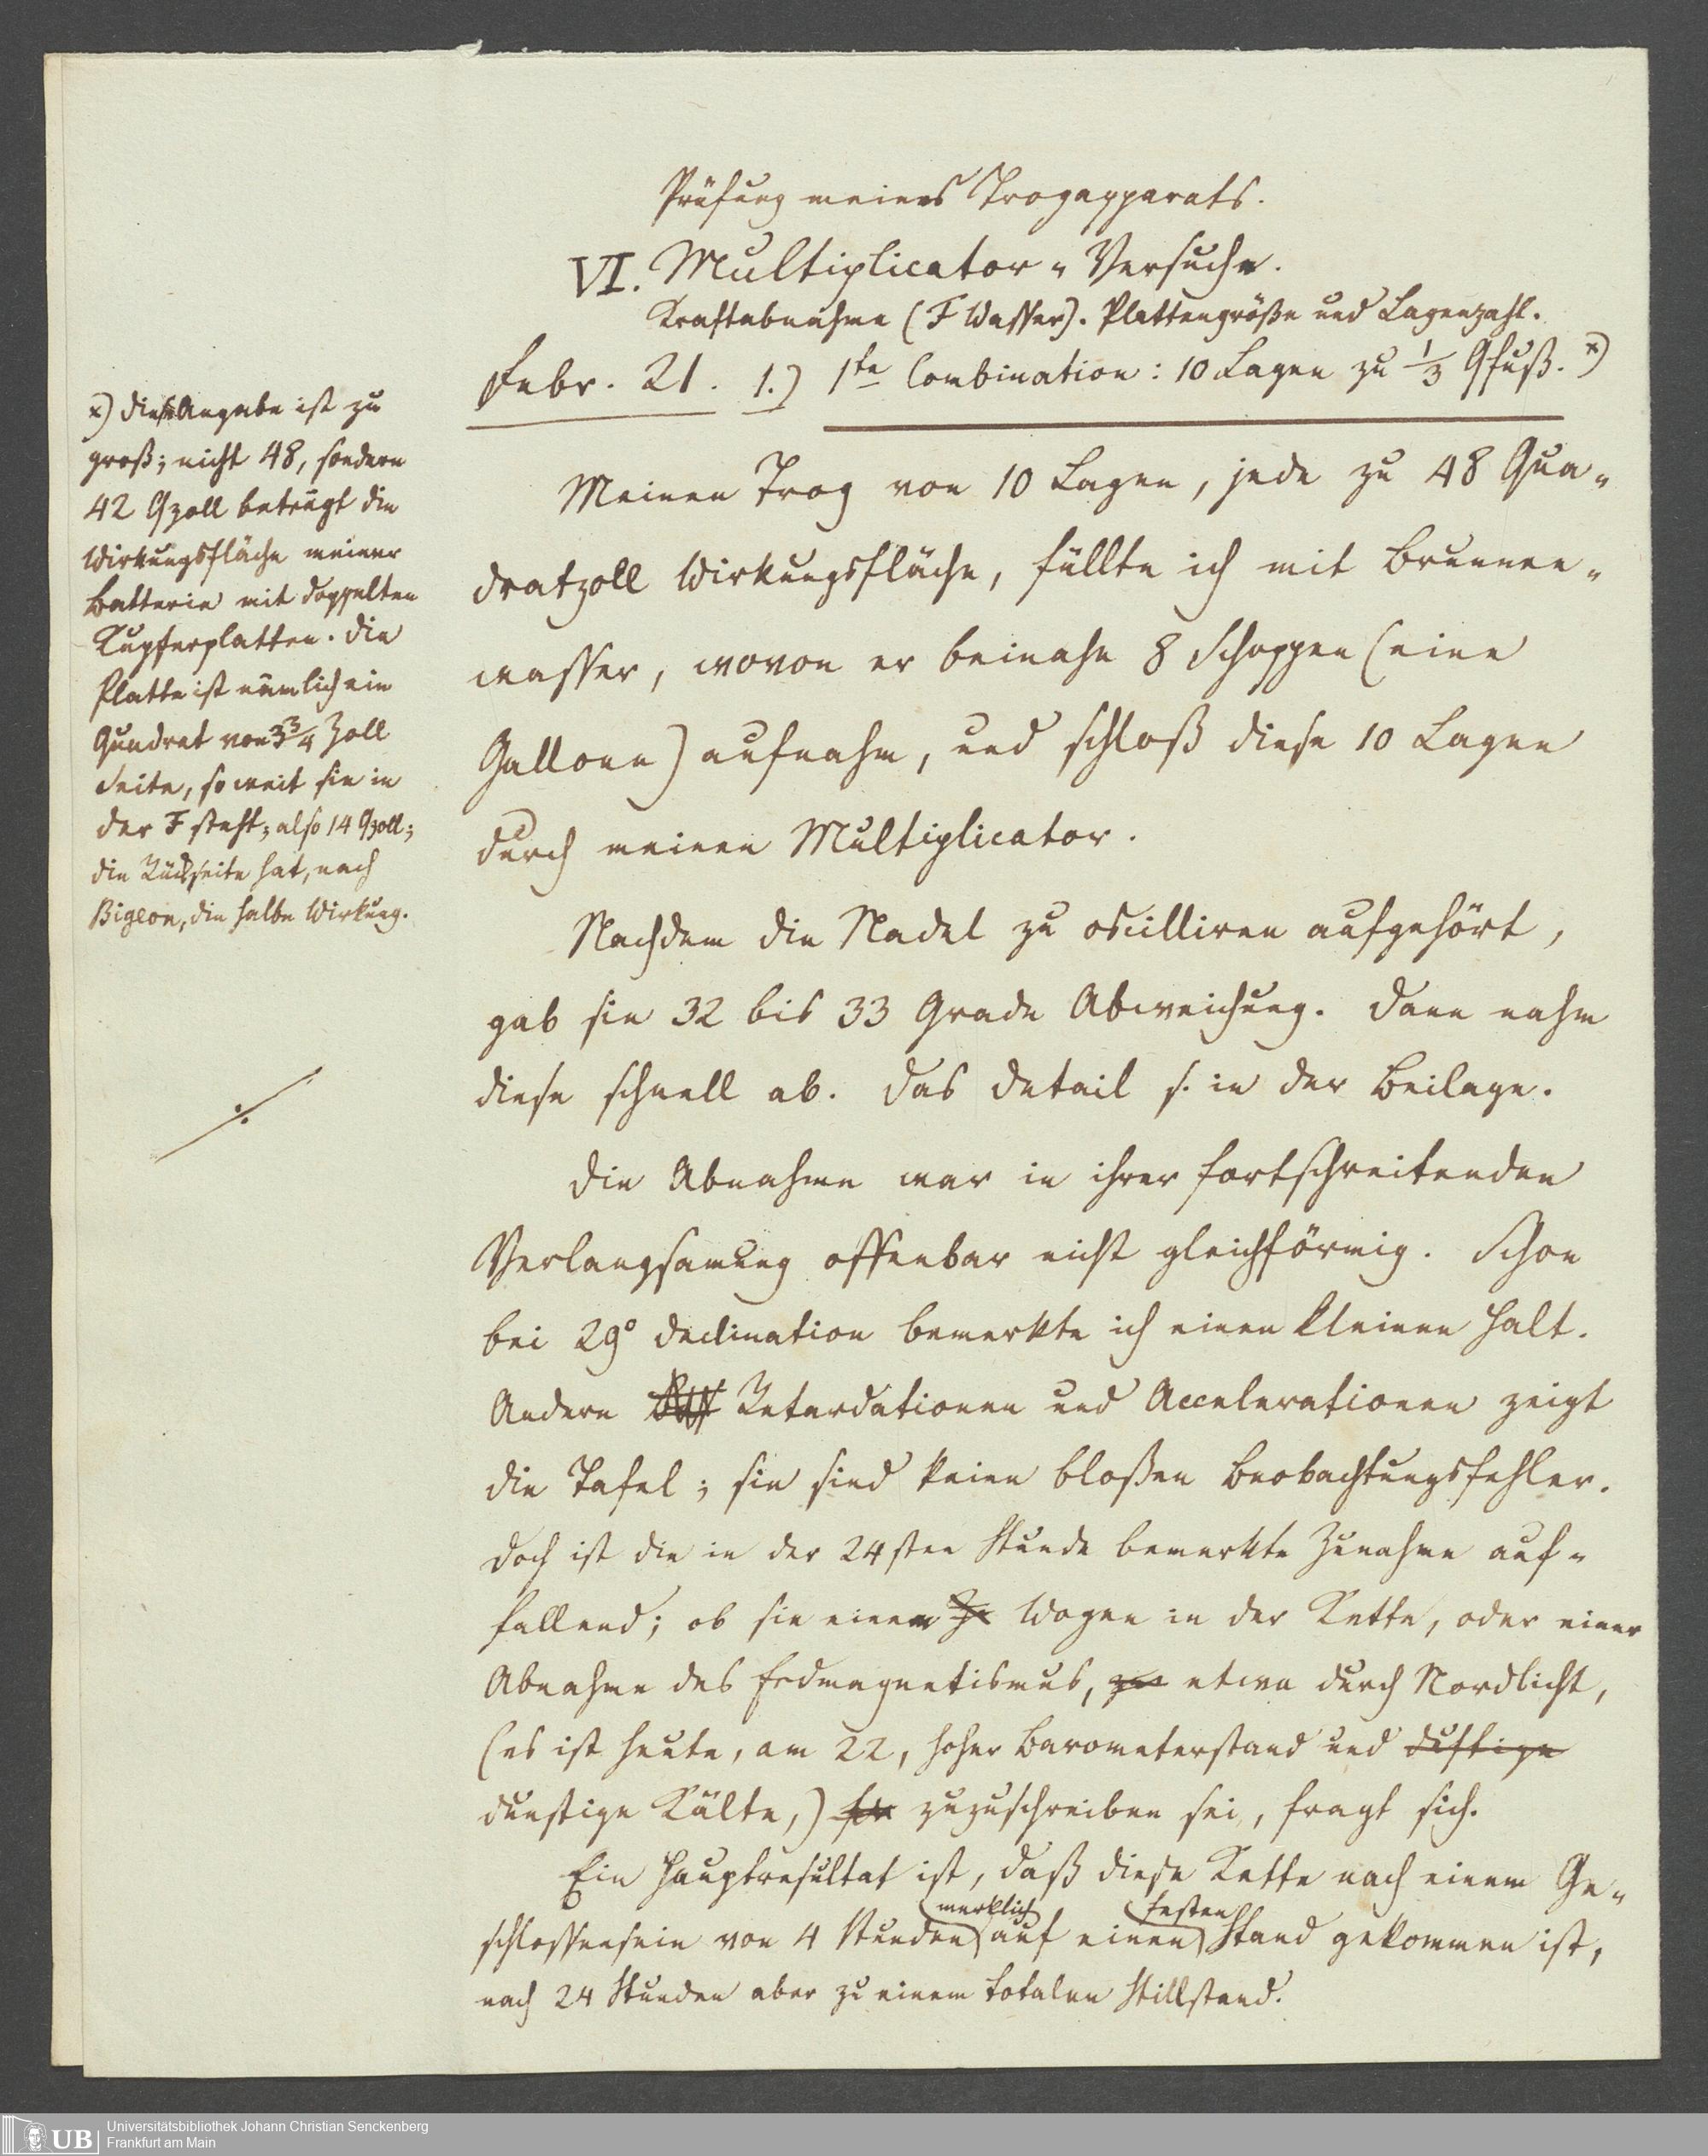 Prüfung meines Trogapparats.
VI. Multiplicator-Versuche.
Kraftabnahme (F Wasser). Plattengröße und Lagenzahl.
Febr. 21. 1.) 1te Combination: 10 Lagen zu 1/3 Qfuß. *)
Meinen Trog von 10 Lagen, jede zu 48 Qua-
dratzoll Wirkungsfläche, füllte ich mit Brunnen-
wasser, wovon er beinahe 8 Schoppen (eine
Gallone) aufnahm, und schloß diese 10 Lagen
durch meinen Multiplicator.
Nachdem die Nadel zu oscilliren aufgehört,
gab sie 32 bis 33 Grade Abweichung. Dann nahm
diese schnell ab. Das Detail s. in der Beilage.
Die Abnahme war in ihrer fortschreitenden
Verlangsamung offenbar nicht gleichförmig. Schon
bei 29° Declination bemerkte ich einen kleinen Halt.
Andere Retardationen und Accelerationen zeigt
die Tafel; sie sind keine bloßen Beobachtungsfehler.
Doch ist die in der 24sten Stunde bemerkte Zunahme auf-
fallend; ob sie einem Wogen in der Kette, oder einer
Abnahme des Erdmagnetismus, etwa durch Nordlicht,
(es ist heute, am 22, hoher Barometerstand und duftige
dunstige Kälte,) zuzuschreiben sei, fragt sich.
Ein Hauptresultat ist, daß diese Kette nach einem Ge-
schlossensein von 4 Stunden merklich auf einen festen Stand gekommen ist,
nach 24 Stunden aber zu einem totalen Stillstand.
*) diese Angabe ist zu
groß; nicht 48, sondern
42 Qzoll beträgt die
Wirkungsfläche meiner
Batterie mit doppelten
Kupferplatten. Die
Platte ist nämlich ein
Quadrat von 3 3/4 Zoll
Seite, so weit sie in
der F steht; also 14 Qzoll;
die Rückseite hat, nach
Bigeon, die halbe Wirkung.
Universitätsbibliothek Johann Christian Senckenberg
Frankfurt am Main
UB